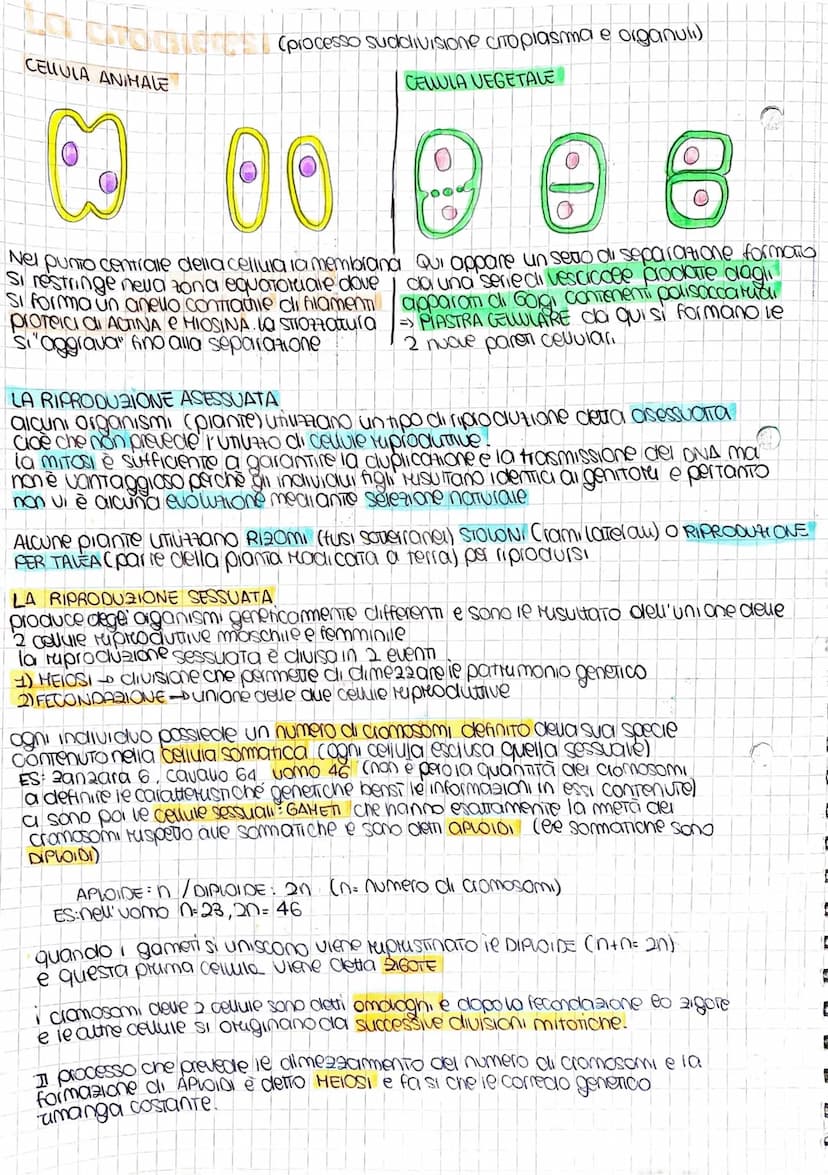 LA CITODIERESI (processo suddivisione citoplasma e organuli)
CELLULA ANIMALE
CELLULA VEGETALE
Nel punto centrale della cellula la membrana
si restringe nella zona equatoriale dove
si forma un anello contrattile di filamenti
proteici di ACTINA e MIOSINA. La strozzatura
si "aggrava" fino alla separazione
Qui appare un setto di separazione formato
da una serie di vescicole prodotte dagli
apparati di Golgi contenenti polisaccaridi
=> PIASTRA CELLULARE da qui si formano le
2 nuove pareti cellulari.
LA RIPRODUZIONE ASESSUATA
alcuni organismi (piante) utilizzano un tipo di riproduzione detta asessuata
cioè che non prevede l'utilizzo di cellule riproduttive.
la mitosi è sufficiente a garantire la duplicazione e la trasmissione del DNA ma
non è vantaggioso perchè gli individui figli risultano identici ai genitori e pertanto
non vi è alcuna evoluzione mediante selezione naturale
Alcune piante utilizzano RIZOMI (fusi sotterranei) STOLONI (rami laterali) o RIPRODUZIONE
PER TALEA (parte della pianta radicata a terra) per riprodursi
LA RIPRODUZIONE SESSUATA
produce dege' organismi geneticamente differenti e sono le risultato dell'unione delle
2 cellule riproduttive maschile e femminile
la riproduzione sessuata è divisa in 2 eventi
1) MEIOSI → divisione che permette di dimezzare le patrimonio genetico
2) FECONDAZIONE → unione delle due cellule riproduttive
ogni individuo possiede un numero di cromosomi definito della sua specie
contenuto nella cellula somatica (ogni cellula esclusa quella sessuale)
ES: zanzara 6, cavallo 64, uomo 46 (non è però la quantità dei cromosomi
a definire le caratteristiche genetiche bensì le informazioni in essi contenute)
ci sono poi le cellule sessuali: GAMETI che hanno esattamente la metà dei
cromosomi rispetto alle sommatiche e sono detti APLOIDI (le sommatiche sono
DIPLOIDI)
APLOIDE: n / DIPLOIDE: 2n (n= numero di cromosomi)
ES: nell'uomo n=23, 2n= 46
quando i gameti si uniscono viene ripristinato le DIPLOIDE (n+n= 2n)
e questa prima cellula viene detta ZIGOTE
i cromosomi delle 2 cellule sono detti omologhi e dopo la fecondazione lo zigote
e le altre cellule si originano da successive divisioni mitotiche.
Il processo che prevede le dimezzamento del numero di cromosomi e la
formazione di APLOIDI è detto MEIOSI e fa sì che le corredo genetico
rimanga costante.